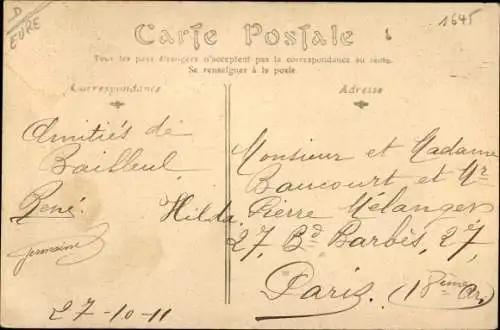 D
EURE
1645
Carte Postale
Tous les pays étrangers n'acceptent pas la correspondance au recto.
Se renseigner à la poste.
Correspondance
Adresse
Amitiés de
Bailleul.
René.
Hilda
Germaine
27-10-11
Monsieur et Madame
Baucourt et Mr
Pierre Mélanger
27, Bd Barbès, 27,
Paris. (18ème Ar)